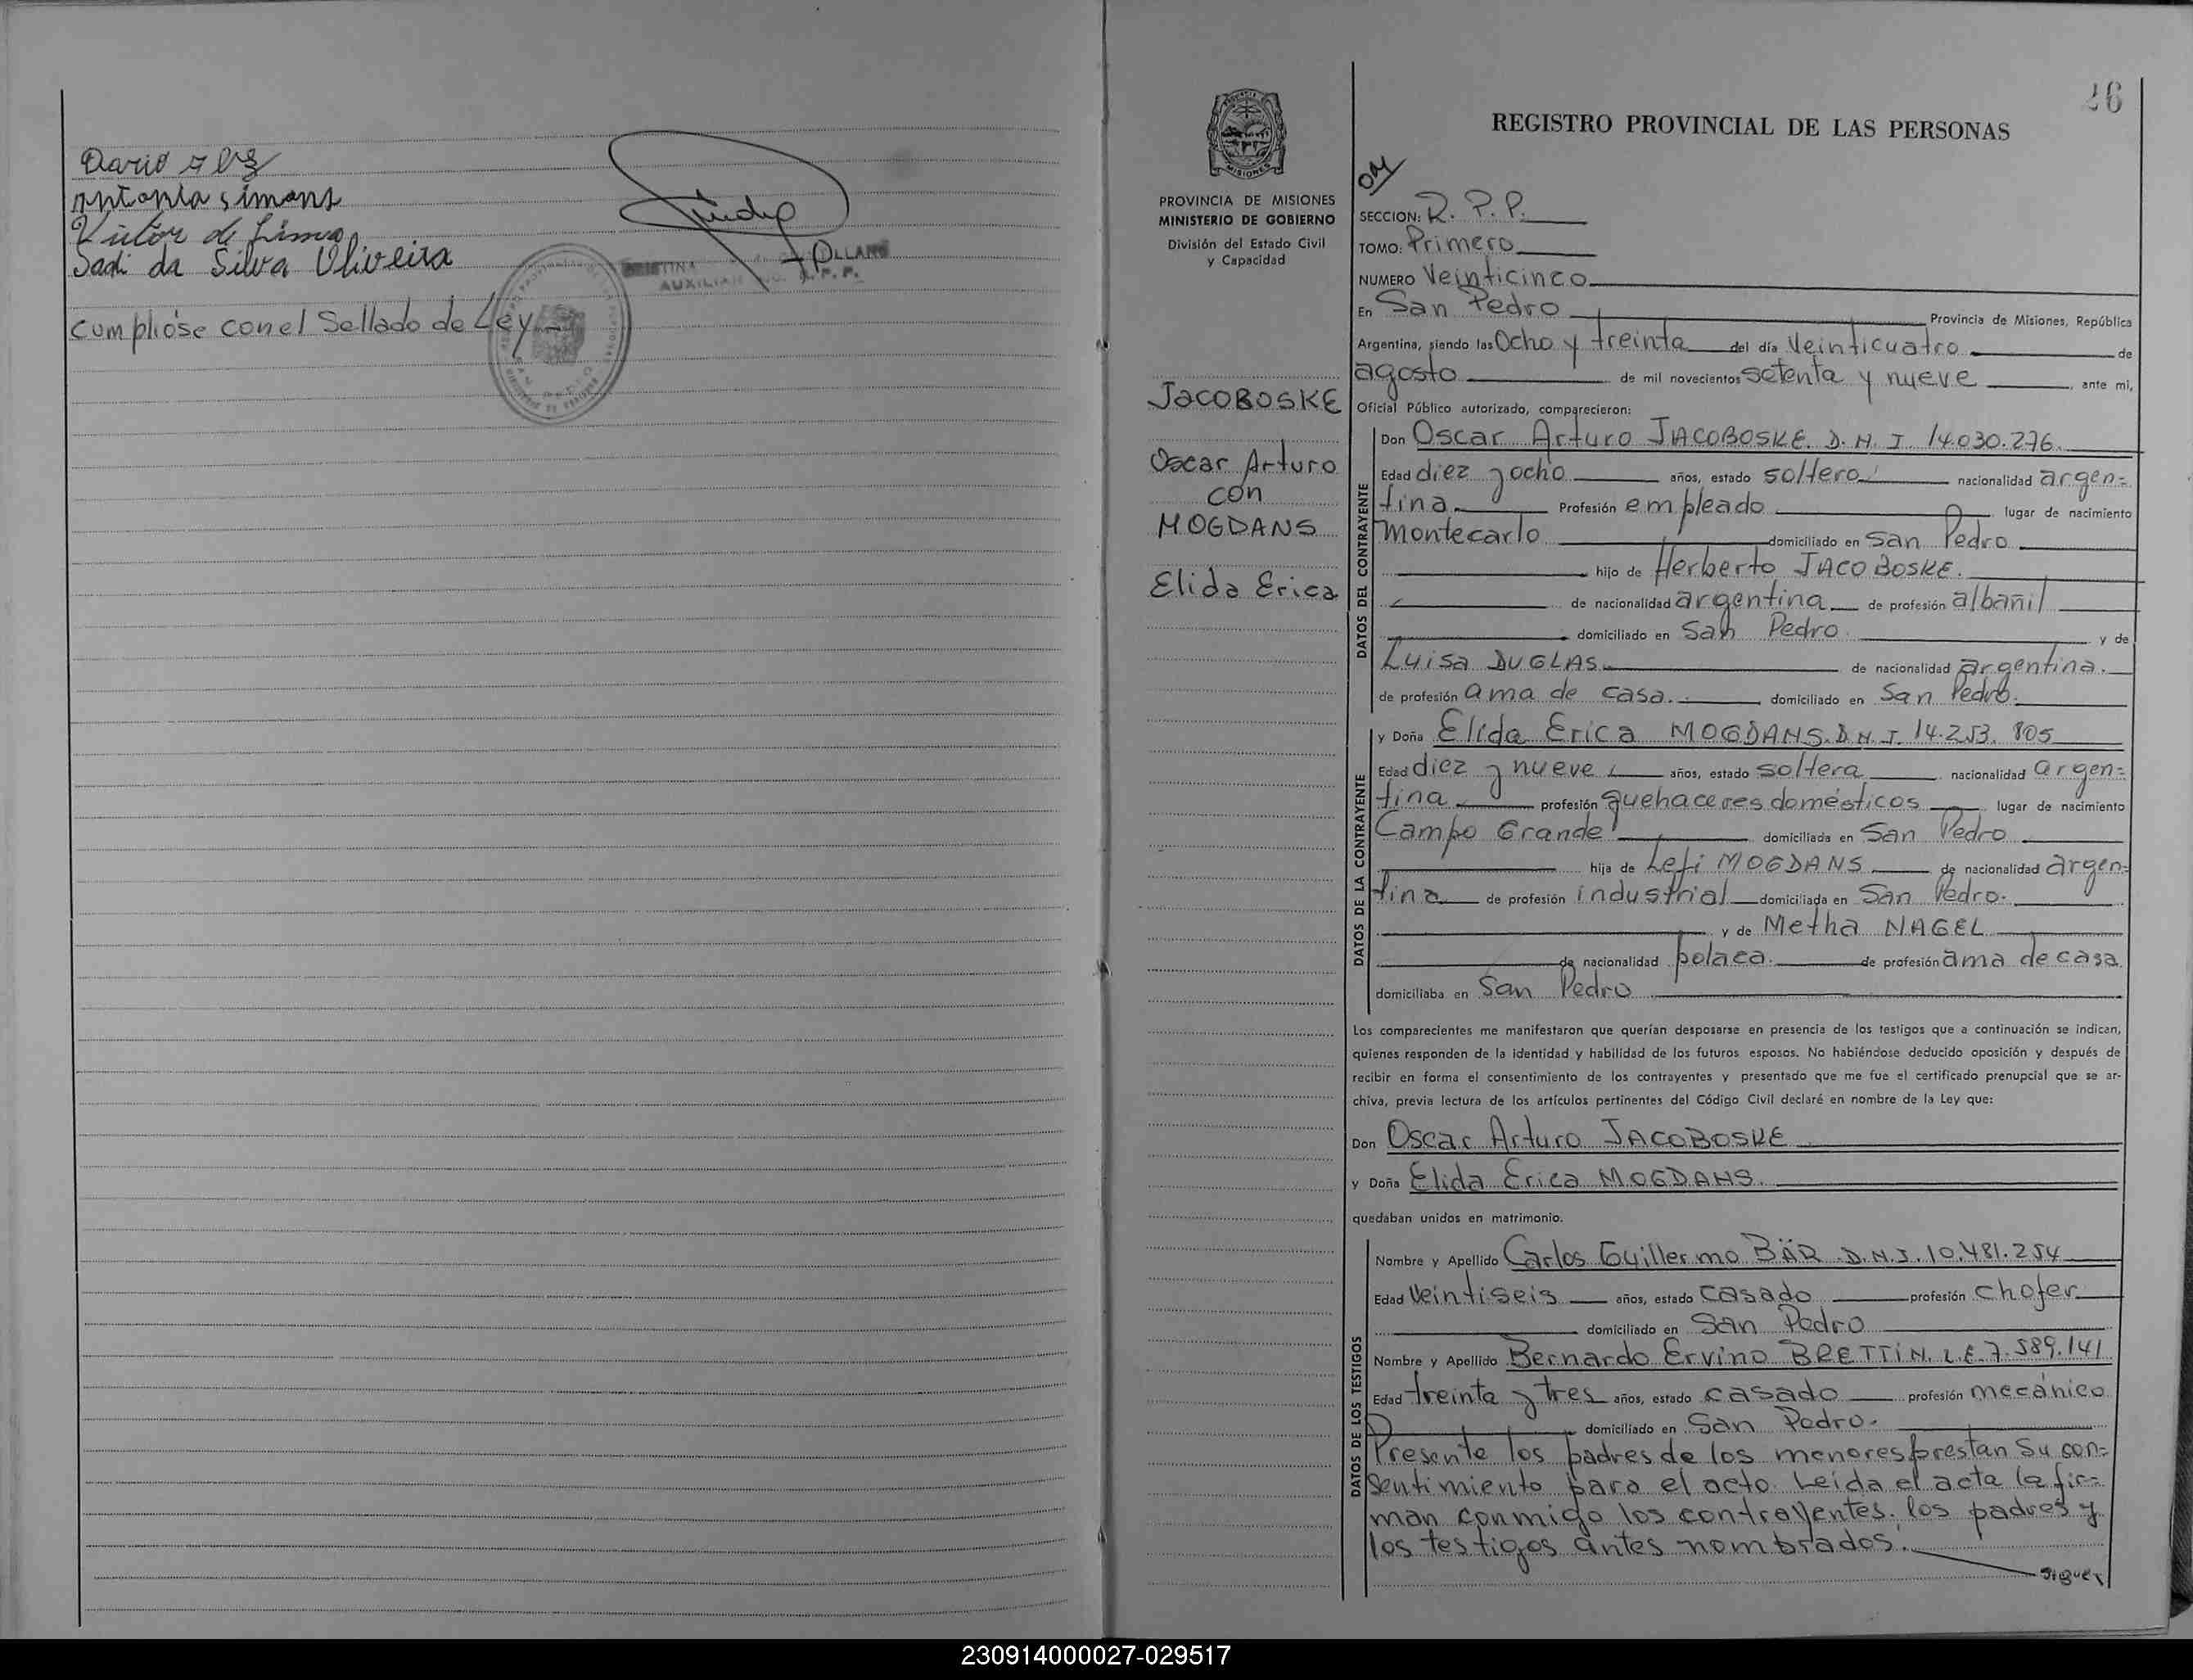 Dario
Antonia Simons
Victor de Lima
Sadi da Silva Oliveira
Cumplióse con el Sellado de Ley
26
REGISTRO PROVINCIAL DE LAS PERSONAS
PROVINCIA DE MISIONES
MINISTERIO DE GOBIERNO
División del Estado Civil
y Capacidad
JACOBOSKE
Oscar Arturo
con
MOGDANS
Elida Erica
SECCION: R. P. P.
TOMO: Primero
NUMERO Veinticinco
En San Pedro Provincia de Misiones, República
Argentina, siendo las Ocho y treinta del día Veinticuatro de
agosto de mil novecientos setenta y nueve ante mi,
Oficial Público autorizado, comparecieron:
DATOS DEL CONTRAYENTE
Don Oscar Arturo JACOBOSKE. D. N. I. 14.030.276.
Edad diez y ocho años, estado soltero nacionalidad argen=
tina. Profesión empleado lugar de nacimiento
Montecarlo domiciliado en San Pedro
hijo de Herberto JACOBOSKE.
de nacionalidad argentina de profesión albañil
domiciliado en San Pedro y de
Luisa DUGLAS. de nacionalidad argentina.
de profesión ama de casa. domiciliado en San Pedro.
DATOS DE LA CONTRAYENTE
y Doña Elida Erica MOGDANS. D. N. I. 14.253.805
Edad diez y nueve años, estado soltera nacionalidad argen=
tina profesión quehaceres domésticos lugar de nacimiento
Campo Grande domiciliada en San Pedro
hija de Lefi MOGDANS de nacionalidad argen=
tina de profesión industrial domiciliada en San Pedro.
y de Metha NAGEL
de nacionalidad polaca. de profesión ama de casa
domiciliaba en San Pedro
Los comparecientes me manifestaron que querían desposarse en presencia de los testigos que a continuación se indican,
quienes responden de la identidad y habilidad de los futuros esposos. No habiéndose deducido oposición y después de
recibir en forma el consentimiento de los contrayentes y presentado que me fue el certificado prenupcial que se ar-
chiva, previa lectura de los artículos pertinentes del Código Civil declaré en nombre de la Ley que:
Don Oscar Arturo JACOBOSKE
y Doña Elida Erica MOGDANS.
quedaban unidos en matrimonio.
DATOS DE LOS TESTIGOS
Nombre y Apellido Carlos Guillermo BÄR D.N.I. 10.481.254
Edad Veintiseis años, estado casado profesión chofer
domiciliado en San Pedro
Nombre y Apellido Bernardo Ervino BRETTIN. L.E. 7.589.141
Edad treinta y tres años, estado casado profesión mecánico
domiciliado en San Pedro.
Presente los padres de los menores prestan su con=
sentimiento para el acto. Leída el acta la fir=
man conmigo los contrayentes. los padres y
los testigos antes nombrados.
Sigue
230914000027-029517